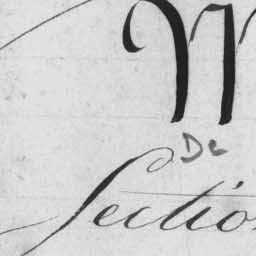 De
Sectio